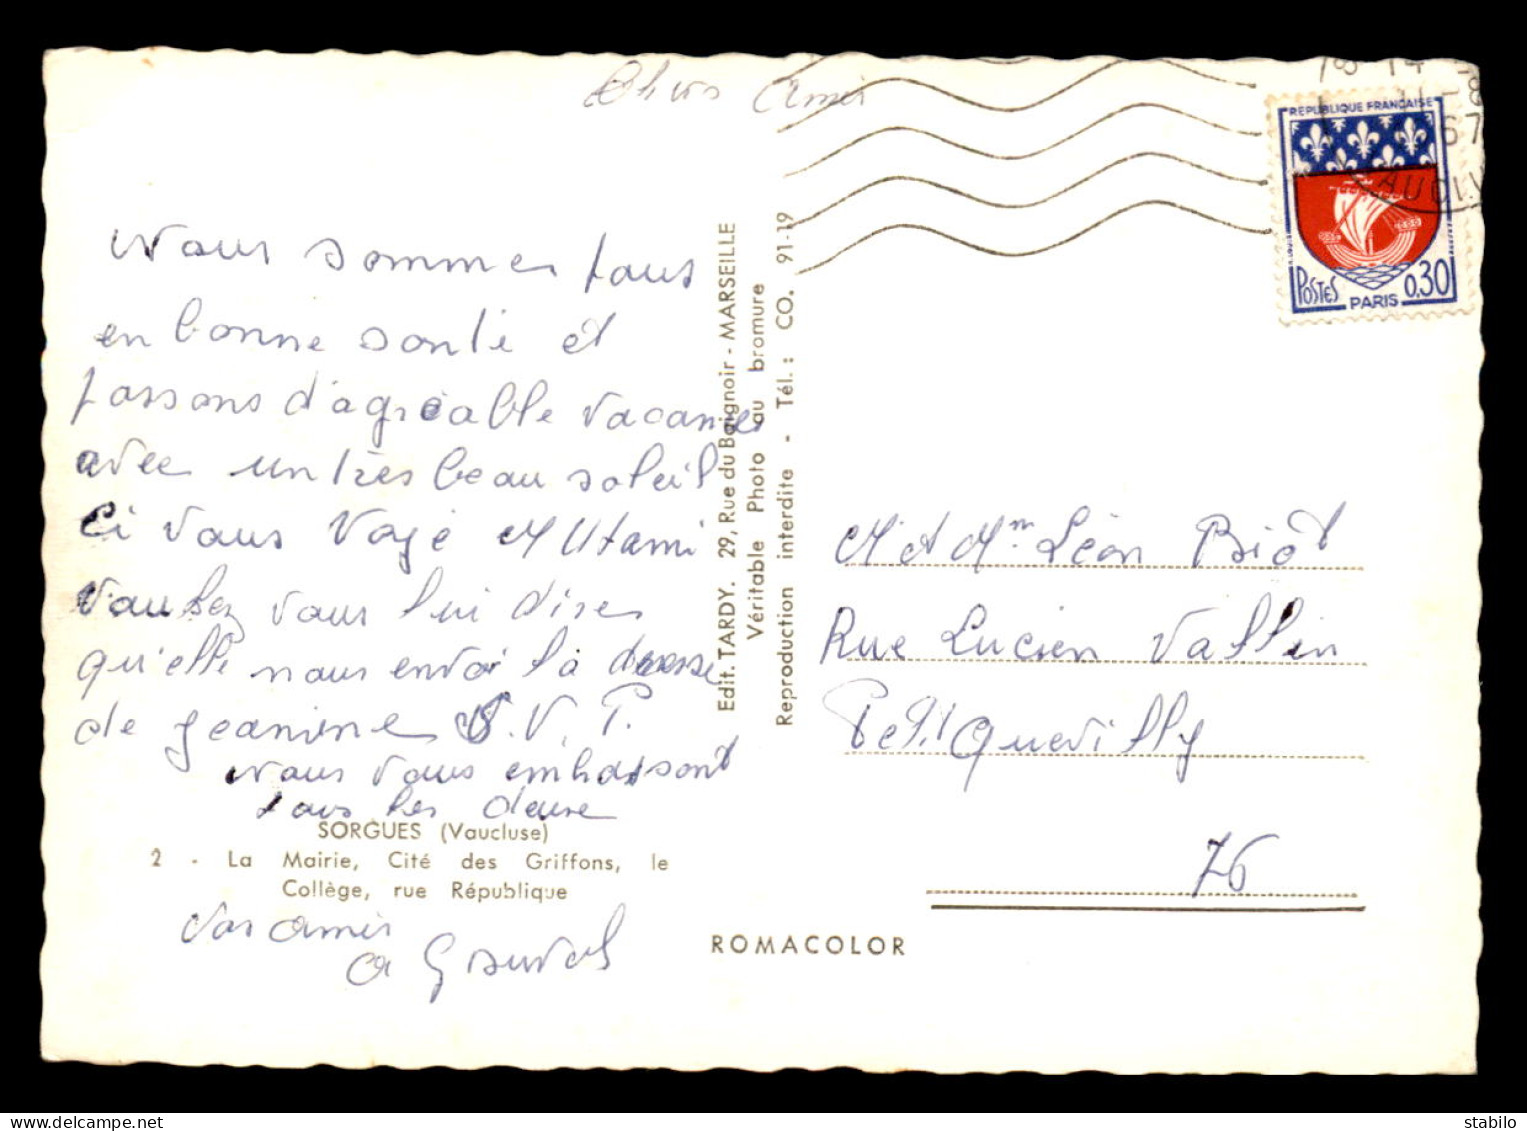 Chers Amis
Nous sommes tous
en bonne santé et
passons d'agréable vacances
avec un très beau soleil
Ci vous voyé
voulez vous lui dires
qu'elle nous envoi la
de Jeanine S.V.P.
nous vous embrassont
tous les deuxe
SORGUES (Vaucluse)
2 - La Mairie, Cité des Griffons, le
Collège, rue République
Vos amis
Edit. TARDY. 29, Rue du Baignoir - MARSEILLE
Véritable Photo au bromure
Reproduction interdite - Tél. : CO. 91-19
ROMACOLOR
14
-8
67
REPUBLIQUE FRANCAISE
POSTES
PARIS
0,30
M et Mm Léon Biot
Rue Lucien Vallin
Petit Quevilly
76
stabilo